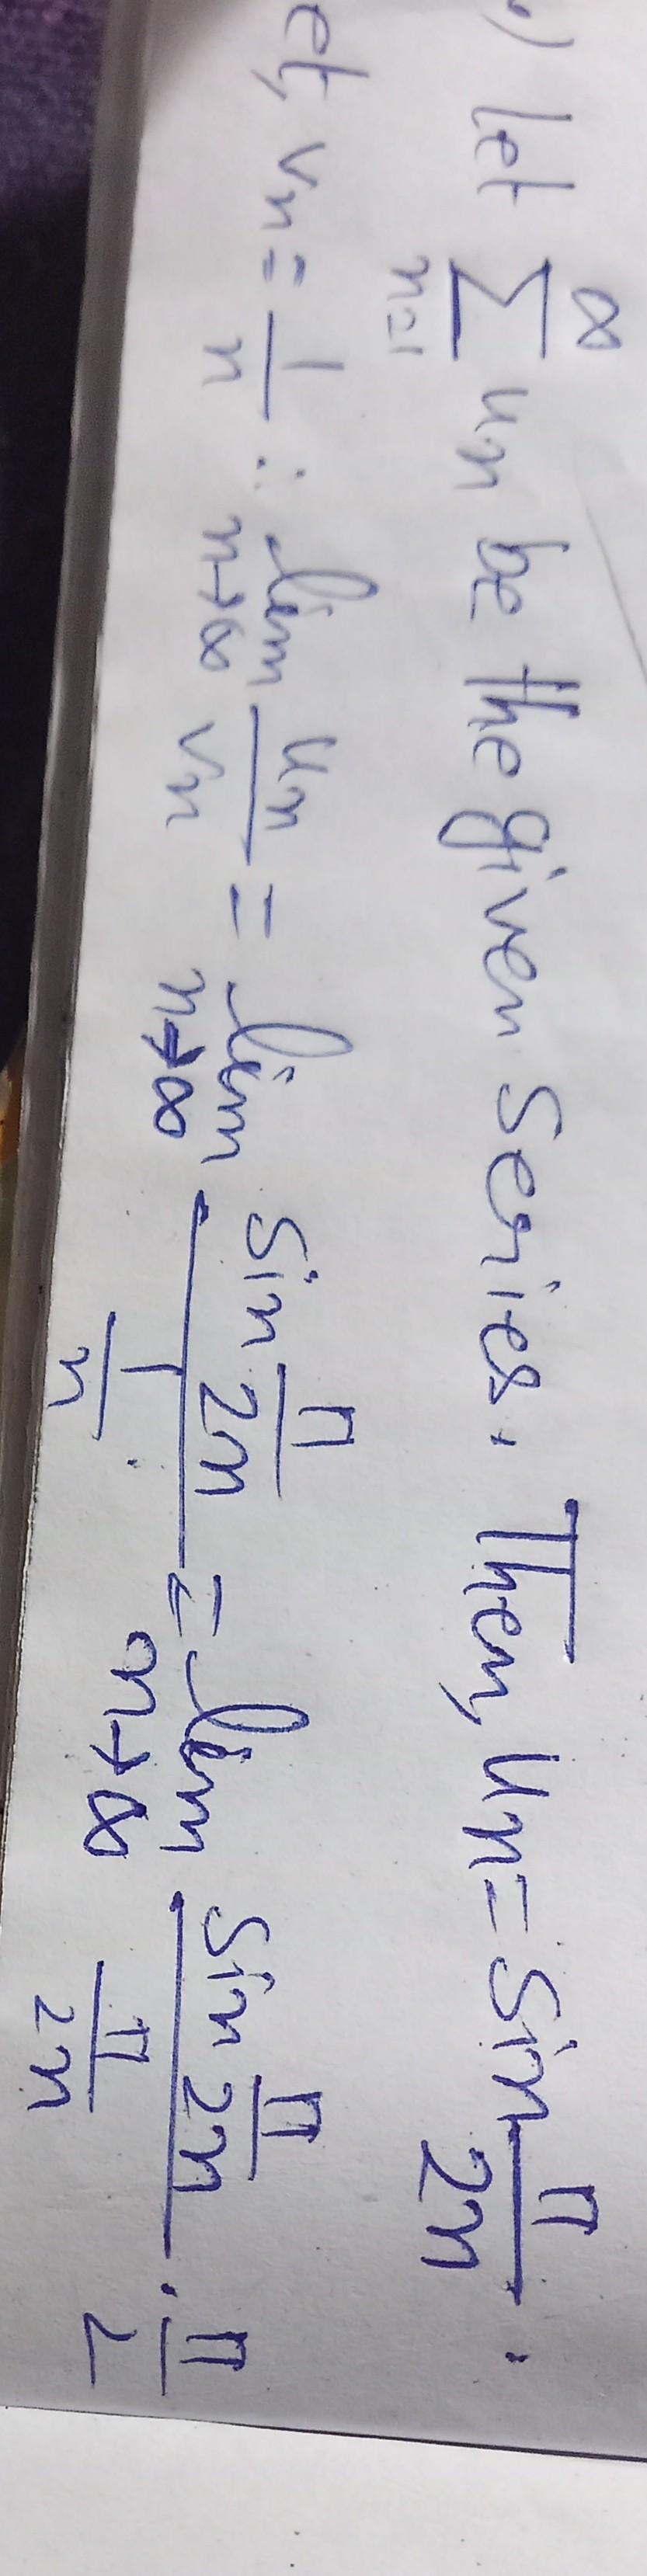 .) Let ∞∑n=1 un be the given Series. Then, un = Sin π/2n .
et, vn = 1/n ∴ lim n→∞ un/vn = lim n→∞ (Sin π/2n)/(1/n) = lim n→∞ (Sin π/2n)/(π/2n) . π/2